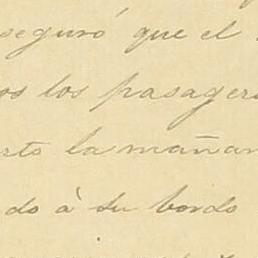 seguró que el
os los pasager
rto la mañan
do à su bordo